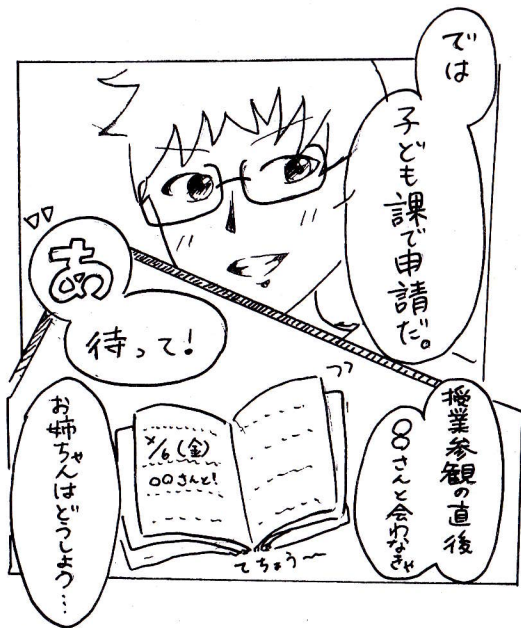 では
子ども課で申請だ。
あ
待って!
授業参観の直後
○○さんと会わなきゃ
×/6(金)
○○さんと!
てちょう〜
お姉ちゃんはどうしよう…